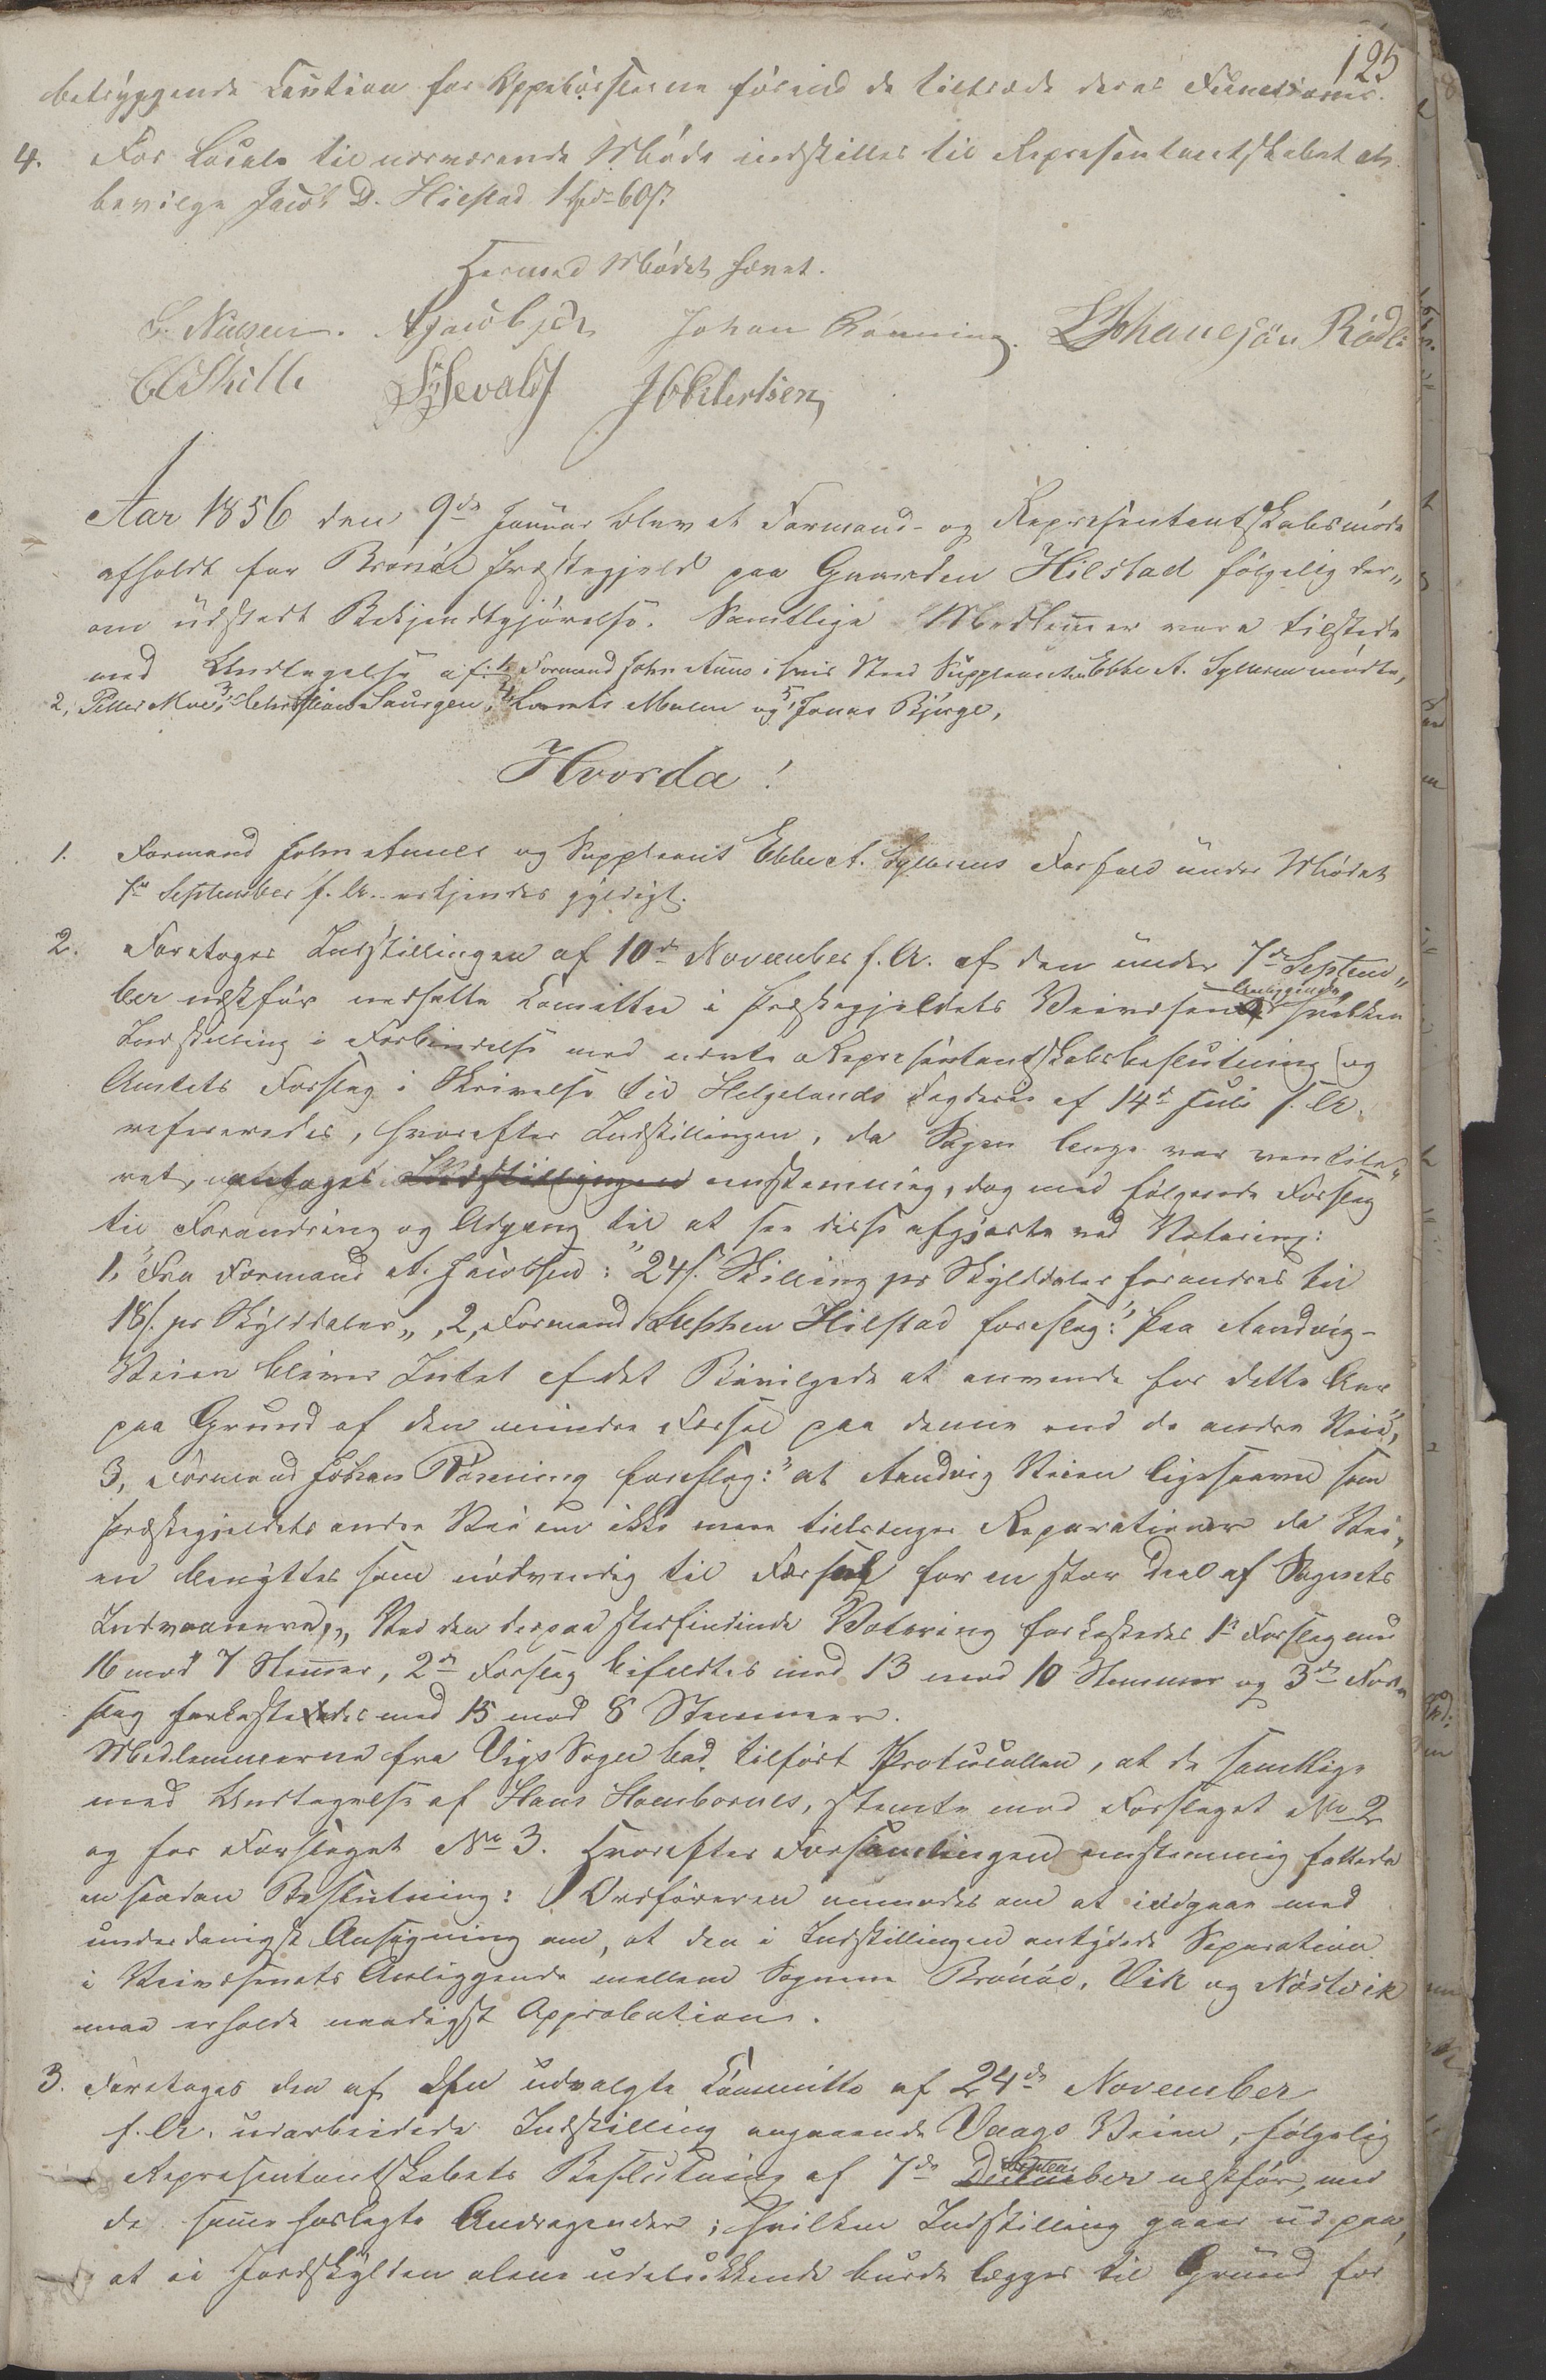 125
betryggende Caution for Oppebørslerne førend de tiltræde deres Functioner.
4. For Locale til nærværende Møde indstilles til Repræsentantskabet at
bevilge Jacob D. Hilstad 1 Spd 60 s
Hermed Mødet hævet.
S. Nilsen. AJacobsen Johan Rønning. LJohanesøn Rødli
Sevald JEbbertsen
Aar 1856 den 9de Januar blev et Formand- og Repræsentantskabsmøde
afholdt for Brønøe Præstegjeld paa Gaarden Hilstad følgelig der„
om udstedt Bekjendtgjørelse. Samtlige Medlemmer vare tilstede
med Undtagelse af: 1, Formand John Aunes i hvis Sted Suppleanten Ebbe A. Sylteren mødte,
2, Petter Moe, 3, Christian Saursgen, 4, Lorents Malm og 5, Jonas Bjørge,
Hvorda!
1. Formand John Aunes og Suppleant Ebbe A. Sylterens Forfald under Mødet
7de September f. A. erkjendes gyldigt.
2. Foretoges Indstillingen af 10de November f. A. af den under 7de Septem„
ber næstfør nedsatte Comittee i Præstegjeldets Veivæsens Anliggende, hvilken
Indstilling i Forbindelse med nævnte Repræsentantskabsbeslutning og
Amtets Forslag i Skrivelse til Helgelands Fogderie af 14de Juli f. A.
refereredes, hvorefter Indstillingen, da Sagen længe var ventile„
ret, antoges Indstillingen enstemmig, dog med følgende Forslag
til Forandring og Adgang til at see disse afgjorte ved Votering:
1, Fra Formand A. Jacobsen: "24 s. Skilling pr Skylddaler forandres til
18 s. pr Skylddaler„, 2, Formand Stephen Hilstad foreslog: "Paa Aandvig-
Veien bliver Intet af det Bevilgede at anvende for dette Aar
paa Grund af den mindre Færsel paa denne end de andre Veie",
3, Formand Johan Rønning foreslog: "at Aandvig Veien ligesaavel som
Præstegjeldets andre Veie om ikke mere tiltrænger Reparationer da Vei„
en benyttes som nødvendig til Færsel for en stor Deel af Sognets
Indvaanere,„ Ved den derpaa stedfindende Votering forkastedes 1ste Forslag med
16 mod 7 Stemmer, 2det Forslag bifaldtes med 13 mod 10 Stemmer og 3die For„
slag forkastedes med 15 mod 8 Stemmer.
Medlemmerne fra Vigs Sogn bad tilført Protocollen, at de samtlige
med Undtagelse af Hans Hombornes, stemte mod Forslaget No 2
og for Forslaget No 3. Hvorefter Forsamlingen enstemmig fattede
en saadan Beslutning: Ordføreren anmodes om at indgaae med
underdanigst Ansøgning om, at den i Indstillingen antydede Separation
i Veivæsenets Anliggende mellem Sognene Brønøe, Vik og Nøstvik
maa erholde naadigst Approbation.
3. Foretoges den af den udvalgte Committe af 24de November
f. A. udarbeidede Indstilling angaaende Vaags Veien, følgelig
Repræsentantskabets Beslutning af 7de December Septem næstfør, med
de samme forlagte Andragender; hvilken Indstilling gaaer ud paa,
at ei Jordskylden alene udelukkende burde lægges til Grund for